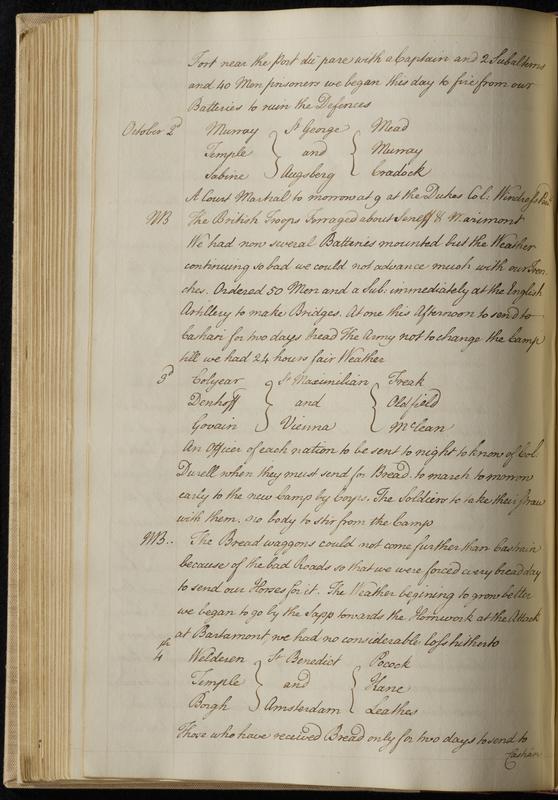 Fort near the Port du pare with a Captain and 2 Subalterns
and 40 Men prisoners we began this day to fire from our
Batteries to ruin the Defences
October 2d Murray } St George { Mead
Temple } and { Murray
Sabine } Augsberg { Cradock
A Court Martial to morrow at 9 at the Dukes Col: Windress
NB The British Troops Forraged about Seneff & Marimont
We had now several Batteries mounted but the Weather
continuing so bad we could not advance much with our Tren
ches. Ordered 50 Men and a Sub: immediately at the English
Artillery to make Bridges. At one this Afternoon to send to
Cashari for two days bread The Army not to change the Camp
till we had 24 hours fair Weather
3d Colyear } St Maximilian { Freak
Denhoff } and { Oldfield
Govain } Vienna { McLean
An Officer of each nation to be sent to night to know of Col:
Durell when they must send for Bread. to march to morrow
early to the new Camp by Corps. The Soldiers to take their straw
with them, no body to stir from the Camp
NB.. The Bread waggons could not come further than Cashain
because of the bad Roads so that we were forced every bread day
to send our Horses for it. The Weather begining to grow better
we began to go by the Sapp towards the Hornwork at the Attack
at Bartamont we had no considerable loss hitherto
4th Welderen } St Benedict { Pocock
Temple } and { Kane
Borgh } Amsterdam { Leathes
Those who have received Bread only for two days to send to
Cashan